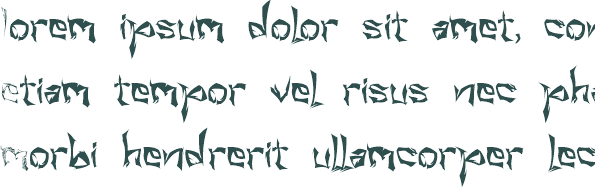 lorem ipsum dolor sit amet, con
etiam tempor vel risus nec pha
morbi hendrerit ullamcorper lec